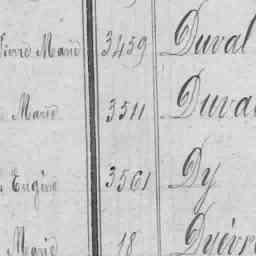 Pierre Marie 3459 Duval
Marie 3511 Duval
Eugène 3561 Dy
Marie 18